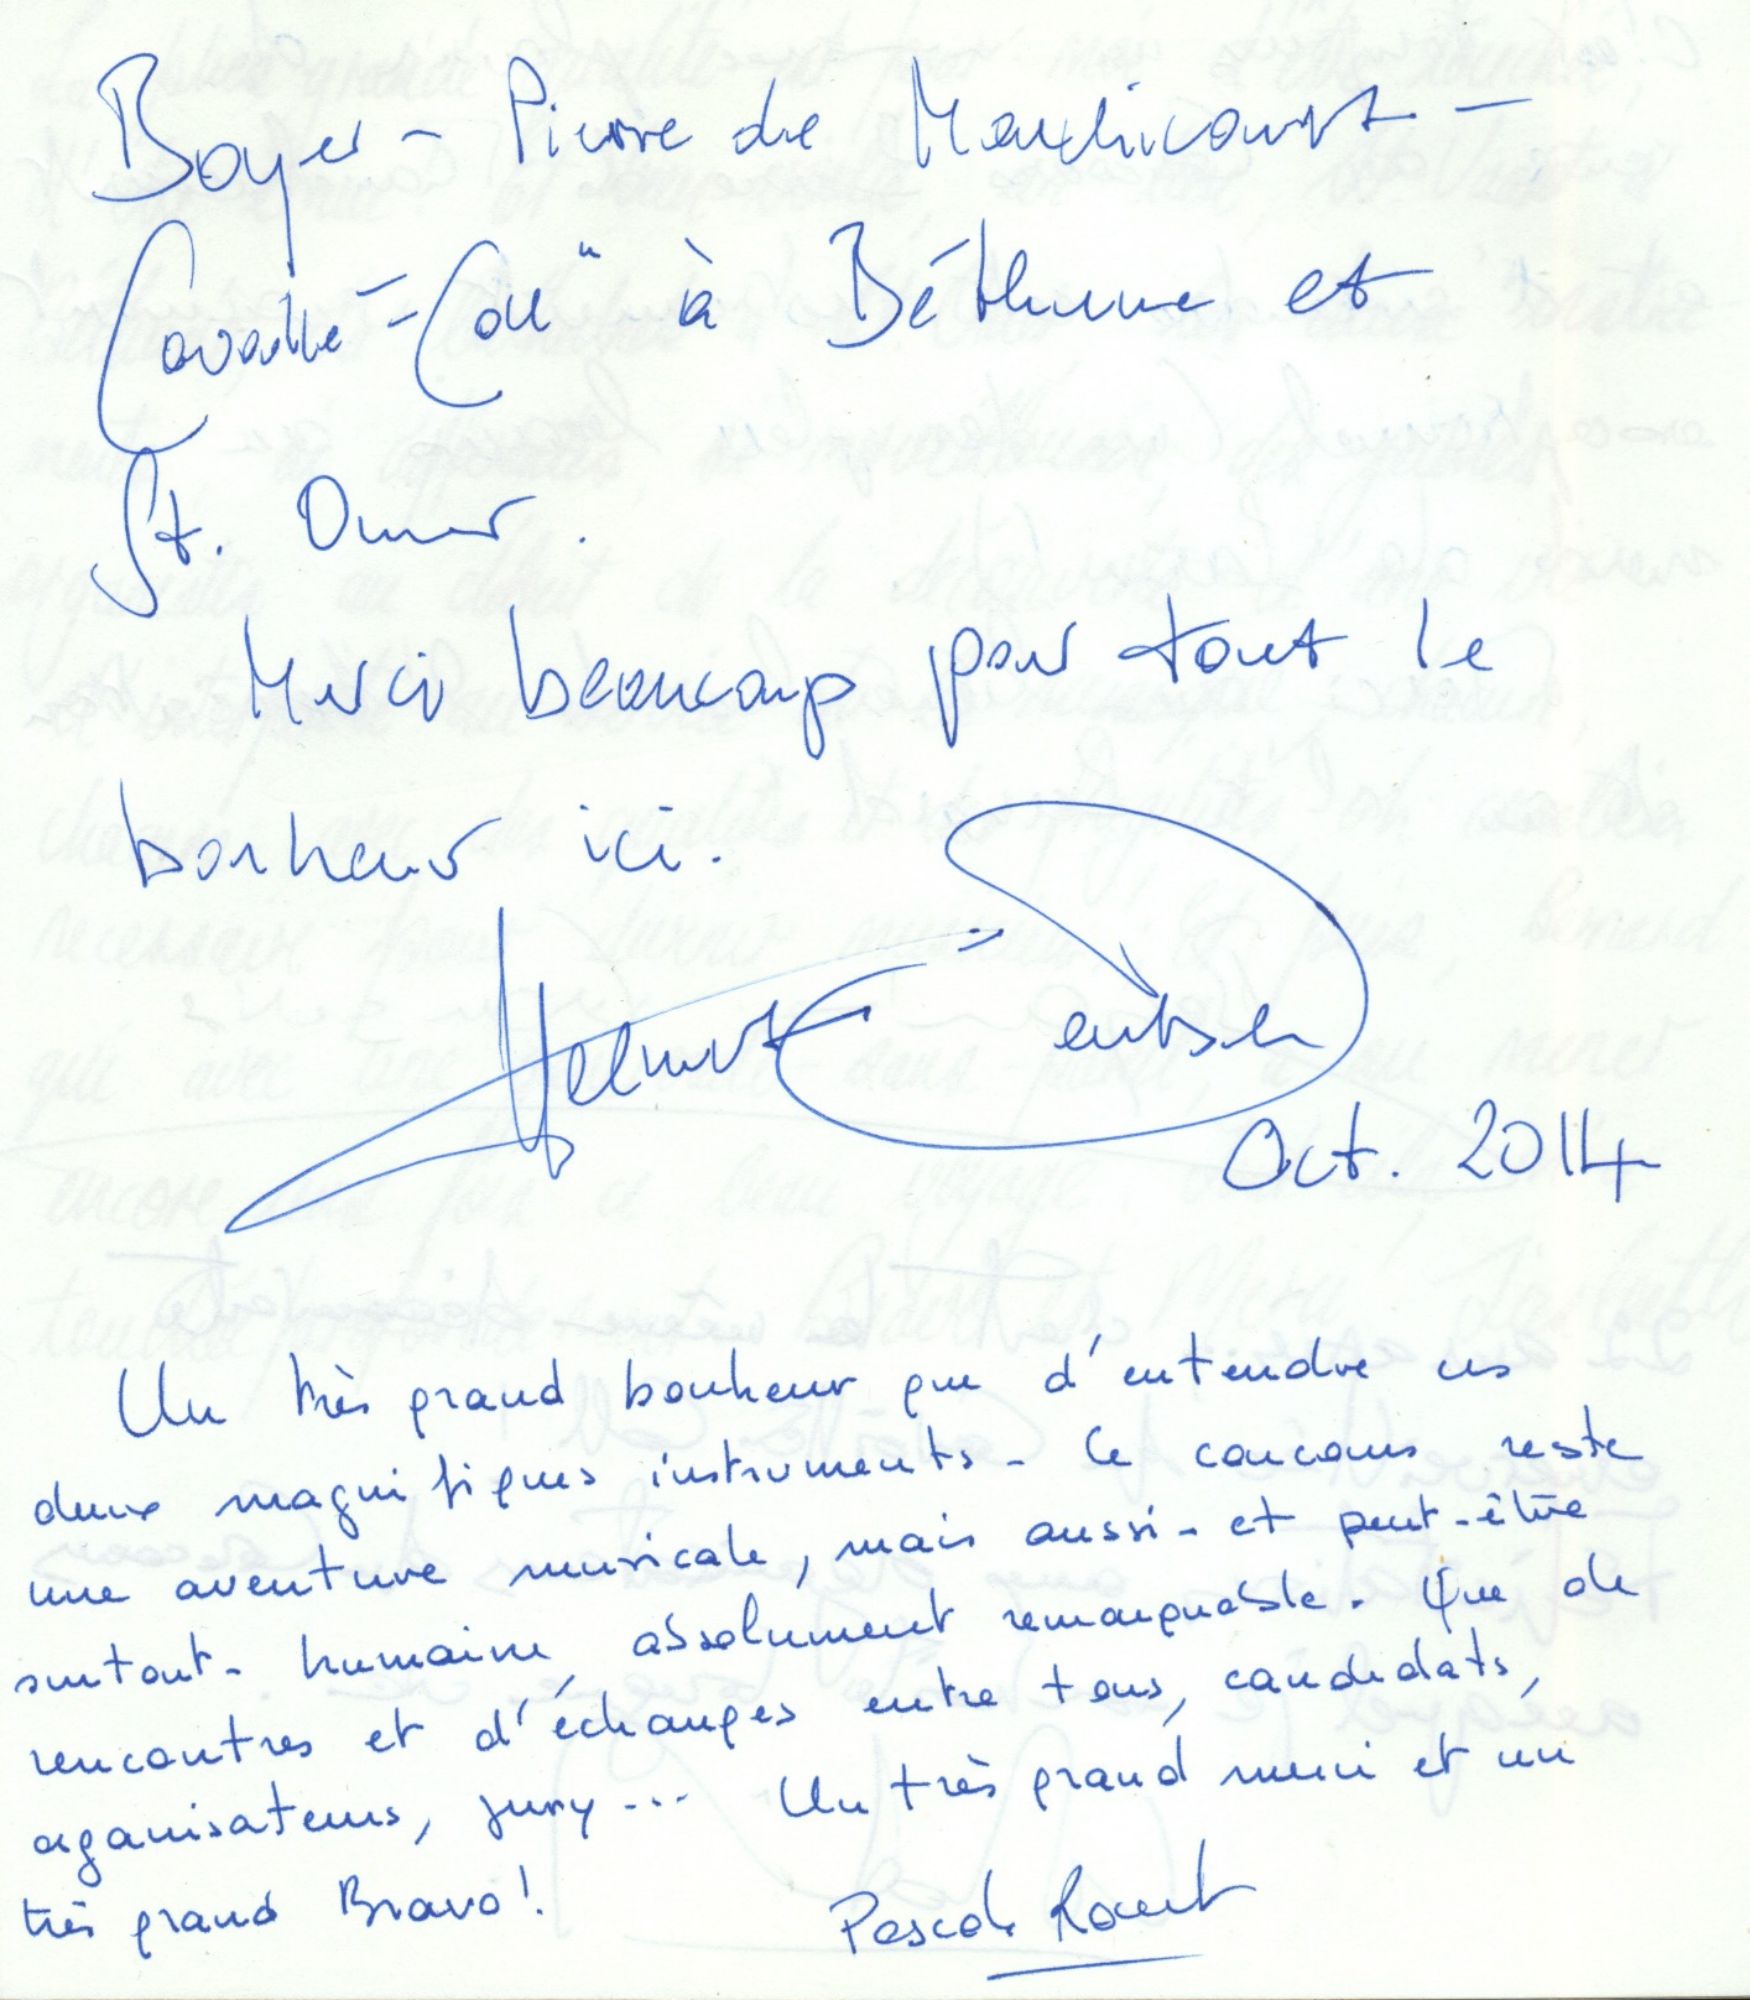 Boyer - Pierre de Manchicourt -
Cavaillé-Coll" à Béthune et
St. Omer.
Merci beaucoup pour tout le
bonheur ici.
Helmut Deutsch
Oct. 2014
Un très grand bonheur que d'entendre ces
deux magnifiques instruments - Ce concours reste
une aventure musicale, mais aussi - et peut-être
surtout - humaine, absolument remarquable. Que de
rencontres et d'échanges entre tous, candidats,
organisateurs, jury... Un très grand merci et un
très grand Bravo!
Pascale Rouet